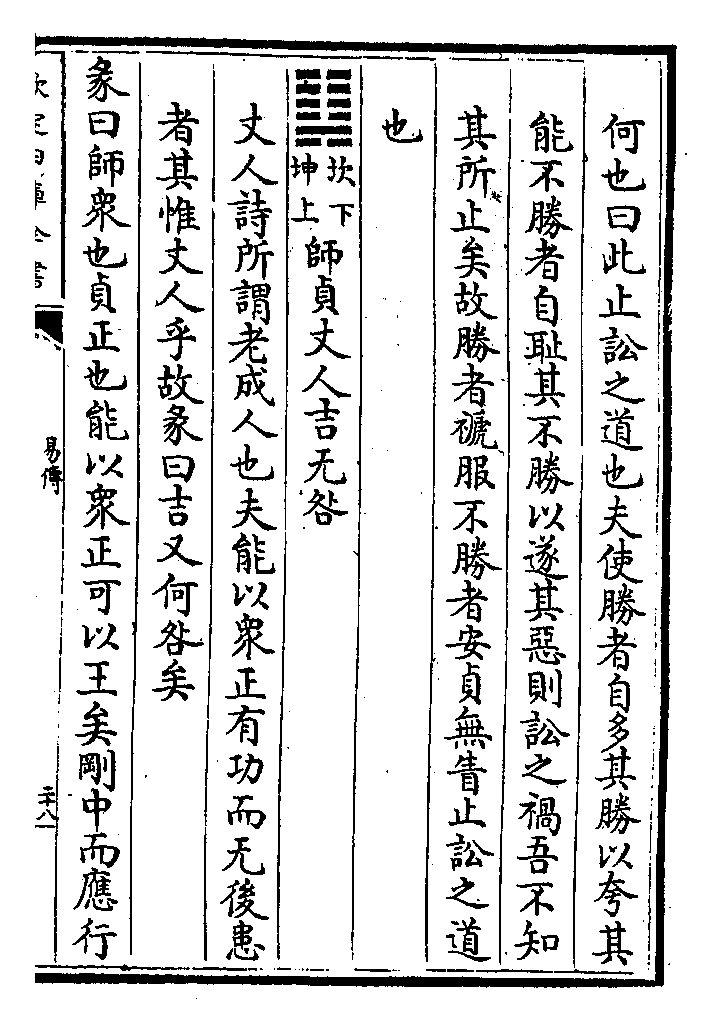 何也曰此止訟之道也夫使勝者自多其勝以夸其
能不勝者自恥其不勝以遂其惡則訟之禍吾不知
其所止矣故勝者褫服不勝者安貞無眚止訟之道
也
䷆坎下坤上師貞丈人吉无咎
丈人詩所謂老成人也夫能以衆正有功而无後患
者其惟丈人乎故彖曰吉又何咎矣
彖曰師衆也貞正也能以衆正可以王矣剛中而應行
欽定四庫全書
易傳
二十八